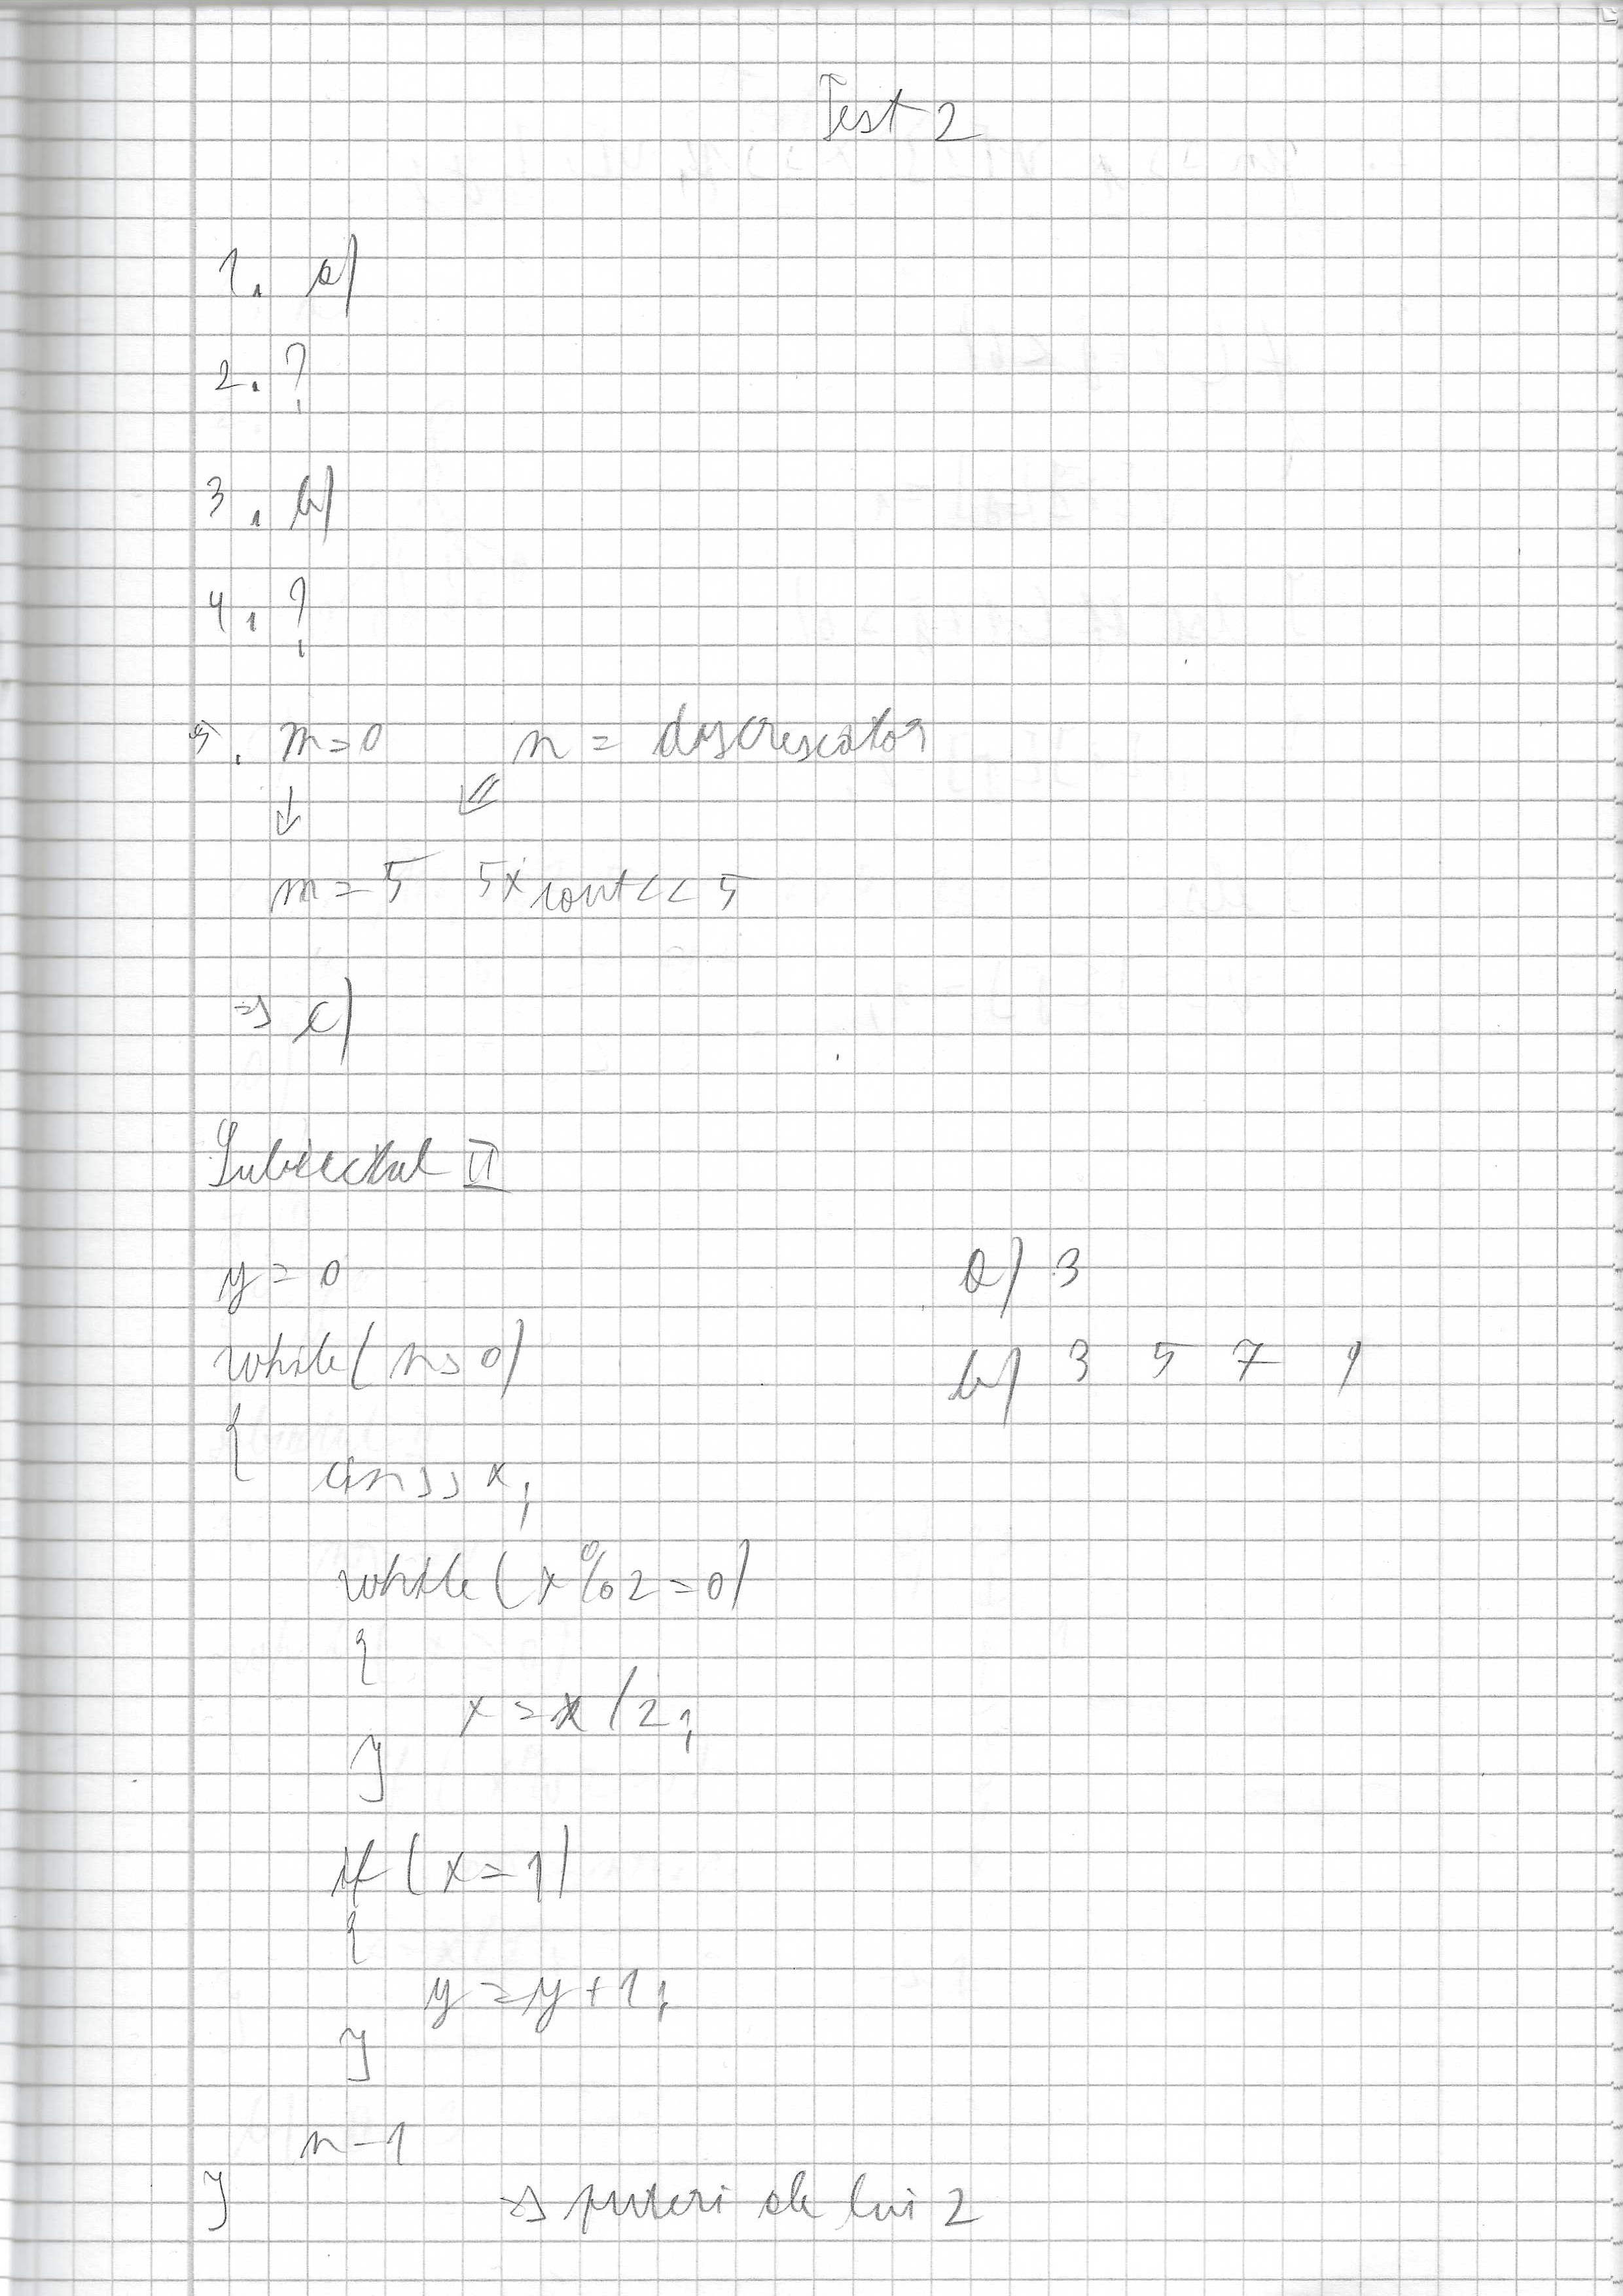 Test 2
1. a)
2. ?
3. b)
4. ?
5. m=0 n = descrescator
m = 5 5x cout<< 5
=> c)
Subiectul II
y = 0 a) 3
while(n>0) b) 3 5 7 9
{ cin>>x;
while(x%2=0)
{
x=x/2;
}
if(x=1)
{
y=y+1;
}
n-1
} => puteri ale lui 2